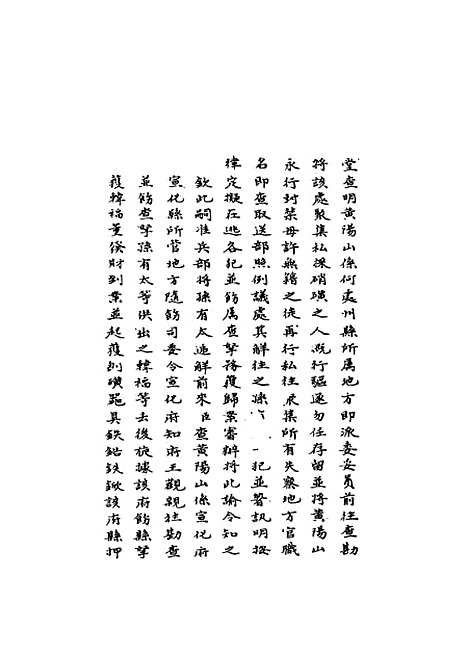 堂查明黄陽山係何處州縣所属地方即派委妥員前往查勘
将該處聚集私深硝磺之人既行驅逐勿任存留並将黄陽山
永行封禁毋許無籍之徒再行私往聚集所有失察地方官職
名即查取送部照例議處其觧往之孫 一犯並著訊明按
律定擬在逃各犯並飭属查拏務獲歸案審辦将此諭令知之
欽此嗣准兵部将孫有太遞觧前來臣查黄陽山係宣化府
宣化縣所管地方隨飭司委令宣化府知府王觀親往勘查
並飭查拏孫有太等供出之韓福等去後旋據該府飭縣拏
獲韓福董俊財到案並起獲刮磺器具鉄鍋鉄鍁該府縣押